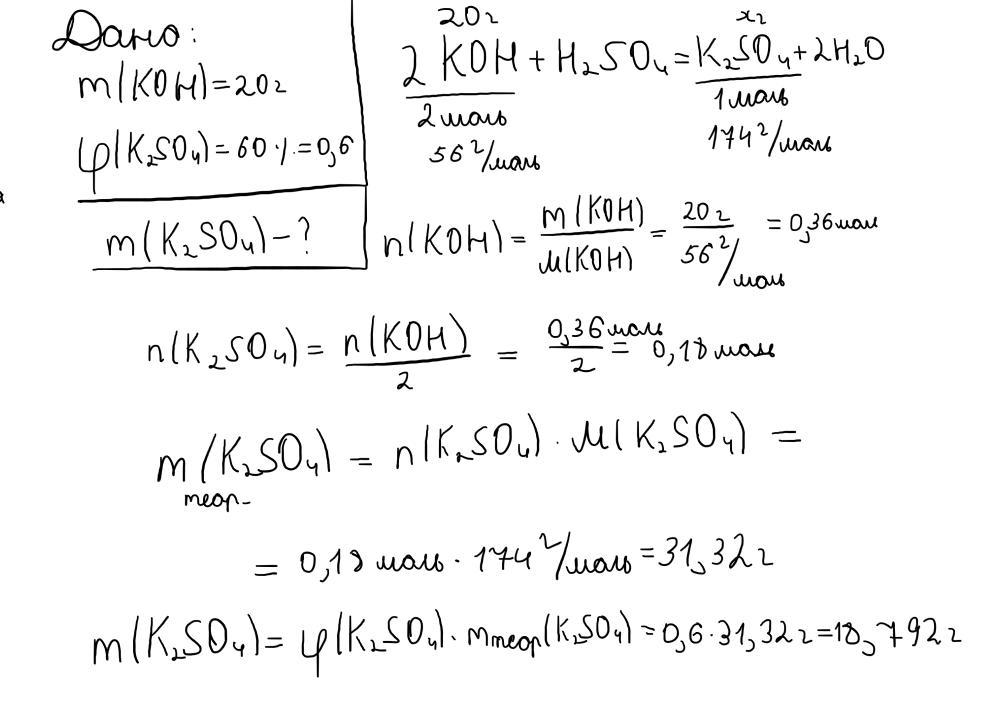 Дано:
m(KOH)=20г
φ(K₂SO₄)=60%=0,6
m(K₂SO₄)-?
20г xг
2KOH+H₂SO₄=K₂SO₄+2H₂O
2моль 1моль
56г/моль 174г/моль
n(KOH)=m(KOH)/M(KOH)=20г/56г/моль=0,36моль
n(K₂SO₄)=n(KOH)/2=0,36моль/2=0,18моль
mтеор-(K₂SO₄)=n(K₂SO₄)·M(K₂SO₄)=
=0,18моль·174г/моль=31,32г
m(K₂SO₄)=φ(K₂SO₄)·mтеор(K₂SO₄)=0,6·31,32г=18,792г